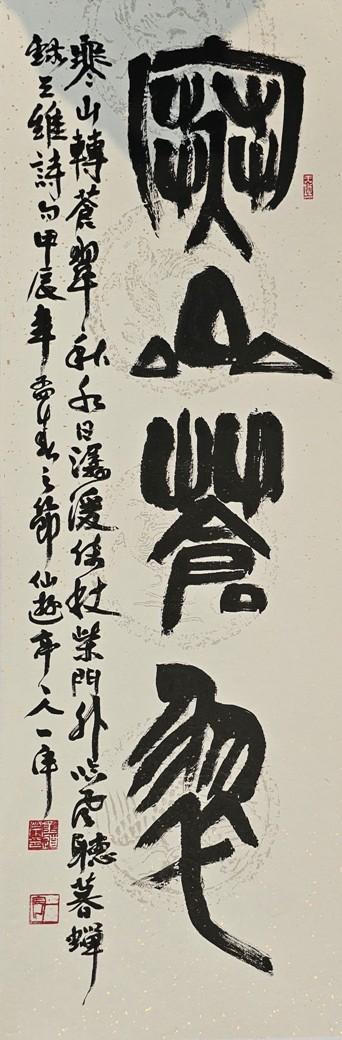 寒山蒼翠
寒山轉蒼翠秋水日潺湲倚杖柴門外臨風聽暮蟬
錄王維詩句甲辰年春之節仙遊人一